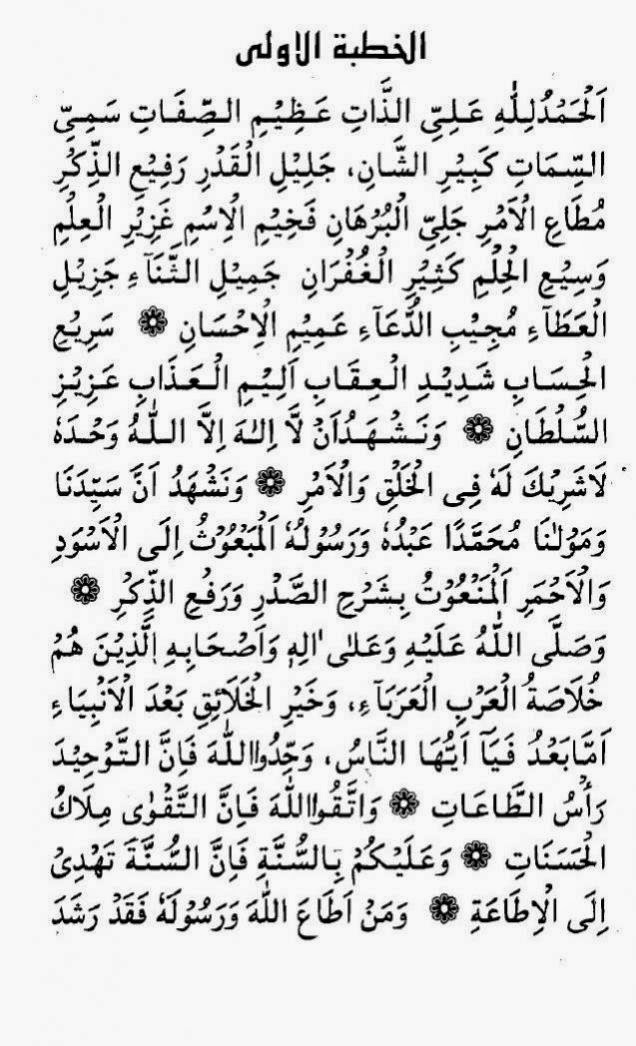 الخطبة الاولى
اَلْحَمْدُلِلّٰهِ عَلِىِّ الذَّاتِ عَظِيْمِ الصِّفَاتِ سَمِىِّ
السِّمَاتِ كَبِيْرِ الشَّانِ، جَلِيْلِ الْقَدْرِ رَفِيْعِ الذِّكْرِ
مُطَاعِ الْاَمْرِ جَلِىِّ الْبُرْهَانِ فَخِيْمِ الْاِسْمِ غَزِيْرِ الْعِلْمِ
وَسِيْعِ الْحِلْمِ كَثِيْرِ الْغُفْرَانِ جَمِيْلِ الثَّنَآءِ جَزِيْلِ
الْعَطَآءِ مُجِيْبِ الدُّعَآءِ عَمِيْمِ الْاِحْسَانِ ❁ سَرِيْعِ
الْحِسَابِ شَدِيْدِ الْعِقَابِ اَلِيْمِ الْعَذَابِ عَزِيْزِ
السُّلْطَانِ ❁ وَنَشْهَدُاَنْ لَّا اِلٰهَ اِلَّا اللّٰهُ وَحْدَهٗ
لَاشَرِيْكَ لَهٗ فِى الْخَلْقِ وَالْاَمْرِ ❁ وَنَشْهَدُ اَنَّ سَيِّدَنَا
وَمَوْلٰنَا مُحَمَّدًا عَبْدُهٗ وَرَسُوْلُهُ الْمَبْعُوْثُ اِلَى الْاَسْوَدِ
وَالْاَحْمَرِ اَلْمَنْعُوْتُ بِشَرْحِ الصَّدْرِ وَرَفْعِ الذِّكْرِ ❁
وَصَلَّى اللّٰهُ عَلَيْهِ وَعَلٰى اٰلِهٖ وَاَصْحَابِهِ الَّذِيْنَ هُمْ
خُلَاصَةُ الْعَرَبِ الْعَرَبَآءِ، وَخَيْرِ الْخَلَائِقِ بَعْدَ الْاَنْبِيَاءِ
اَمَّابَعْدُ فَيَآ اَيُّهَا النَّاسُ، وَحِّدُوااللّٰهَ فَاِنَّ التَّوْحِيْدَ
رَأْسُ الطَّاعَاتِ ❁ وَاتَّقُوااللّٰهَ فَاِنَّ التَّقْوٰى مِلَاكُ
الْحَسَنَاتِ ❁ وَعَلَيْكُمْ بِالسُّنَّةِ فَاِنَّ السُّنَّةَ تَهْدِىْ
اِلَى الْاِطَاعَةِ ❁ وَمَنْ اَطَاعَ اللّٰهَ وَرَسُوْلَهٗ فَقَدْ رَشَدَ